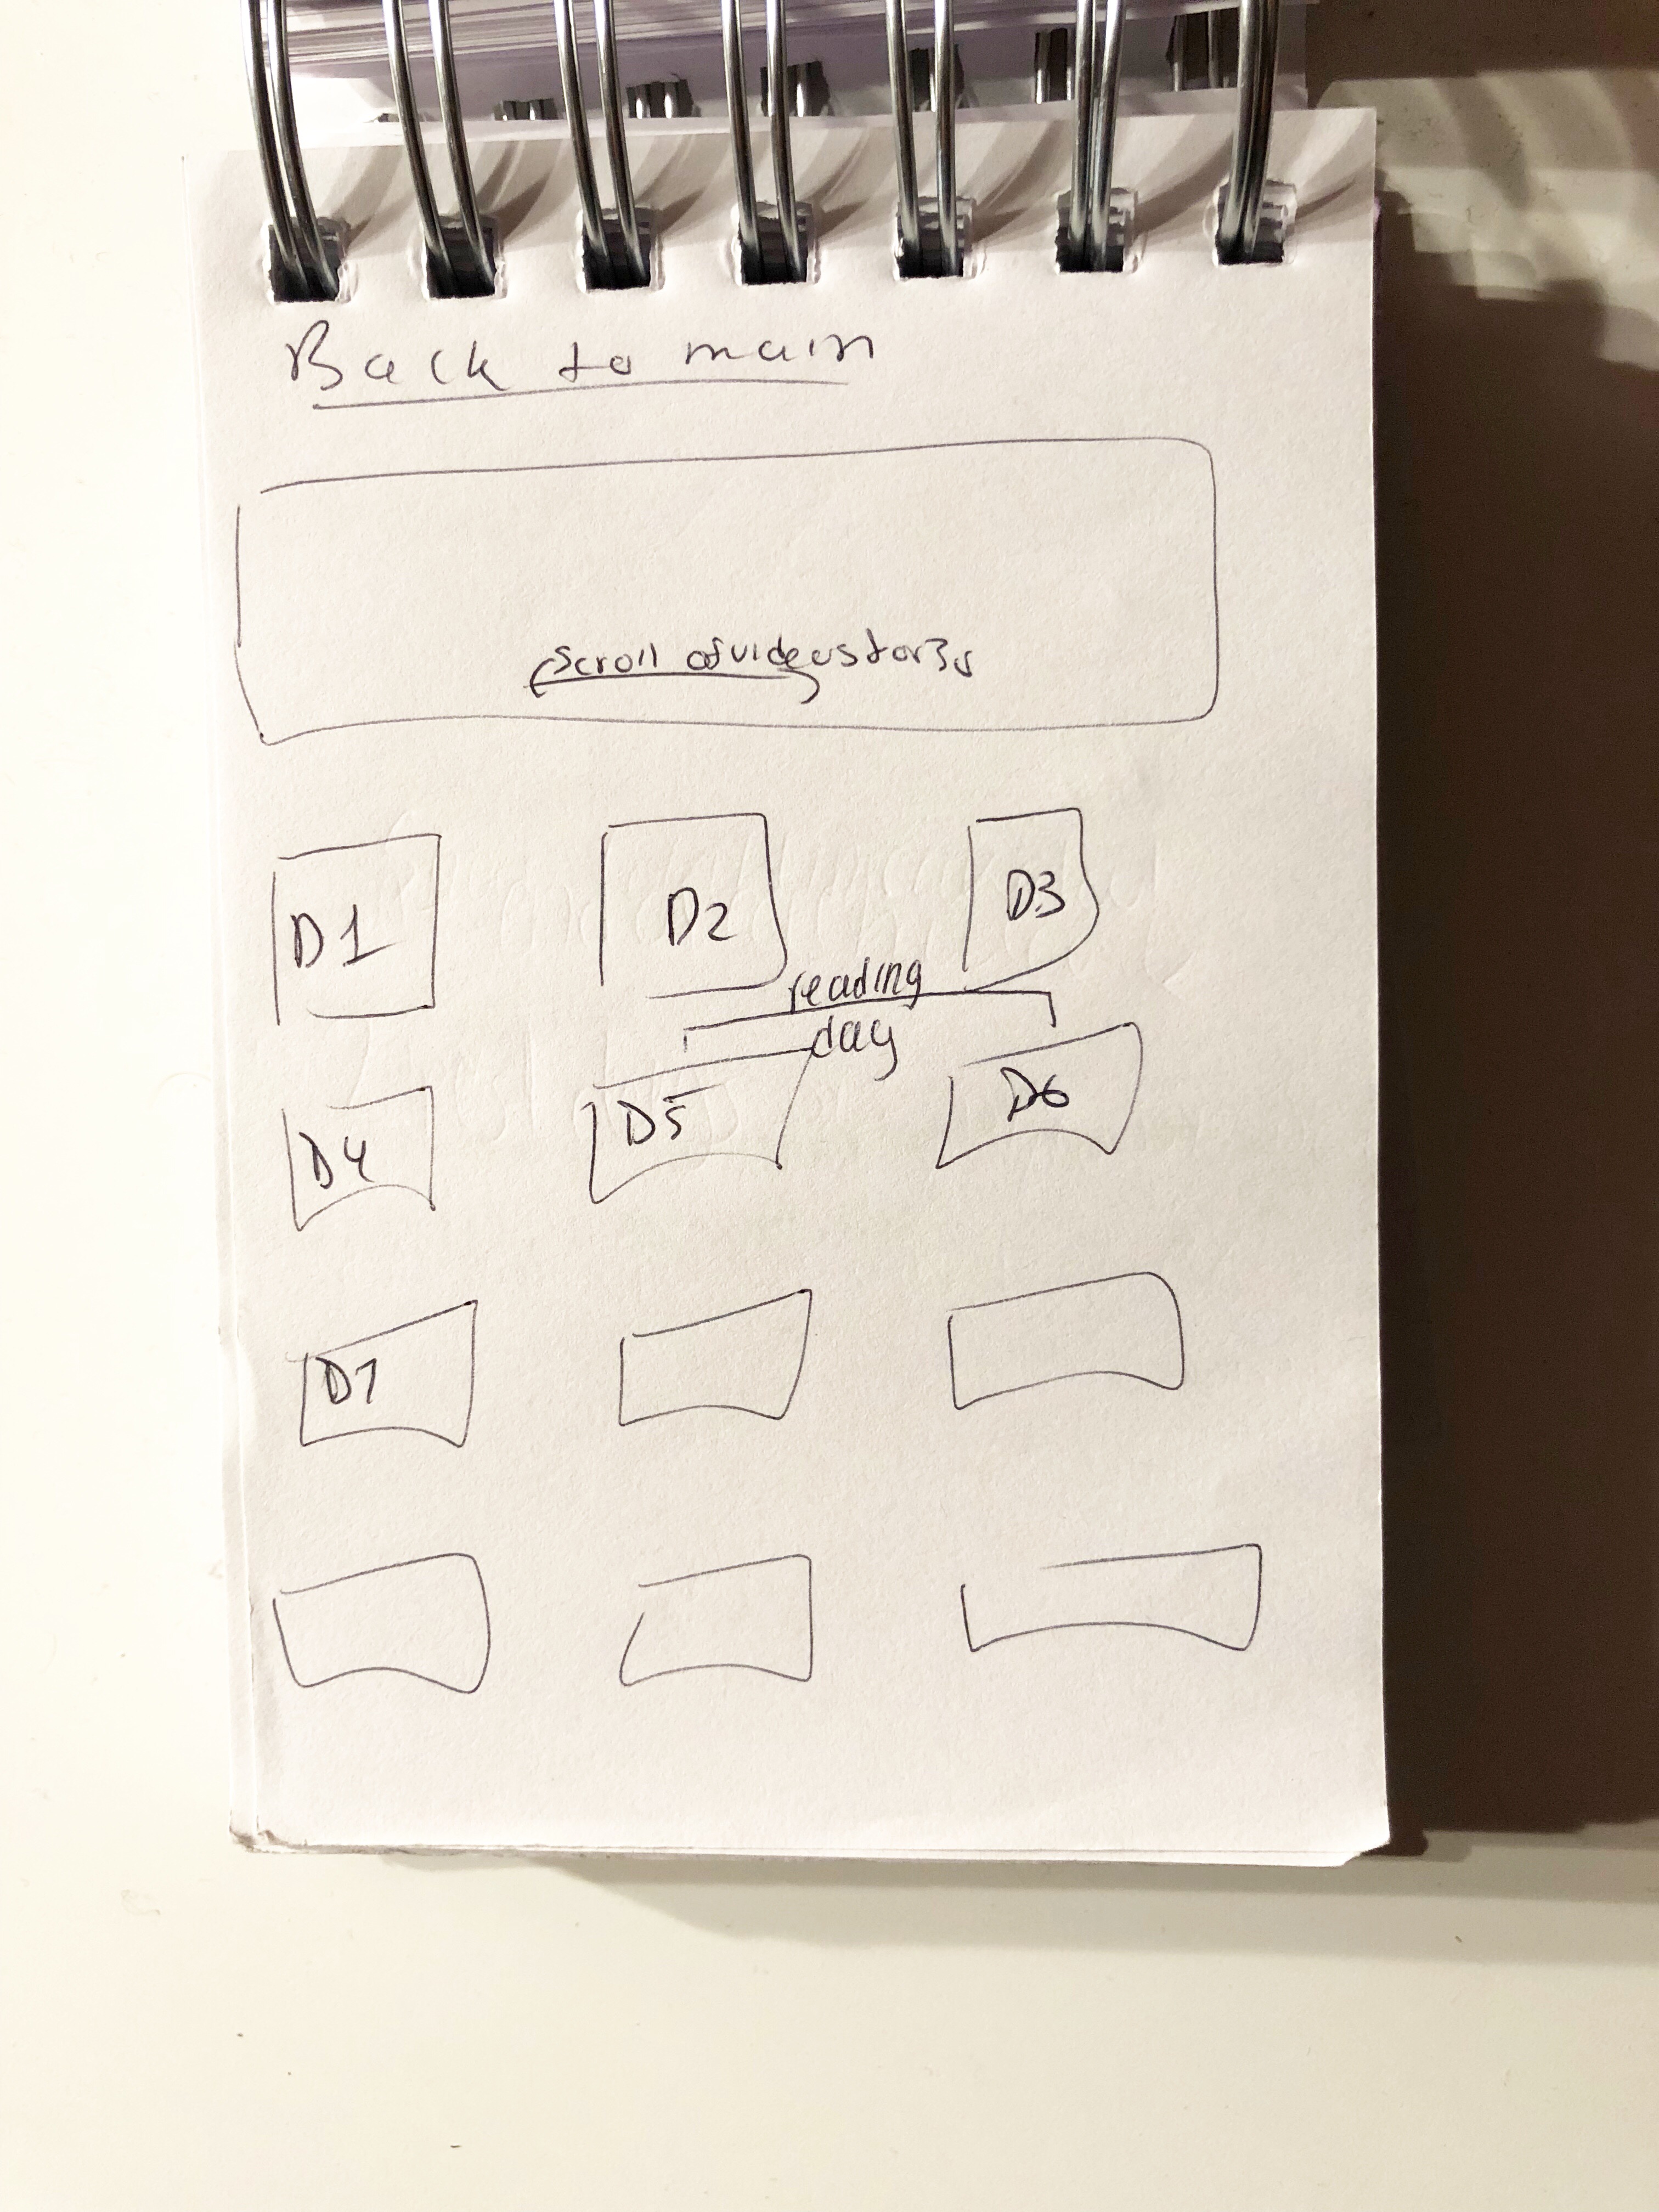 Back to main
scroll of videostorys
D1 D2 D3
reading
day
D4 D5 D6
D7